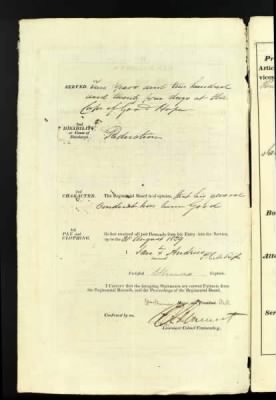 SERVED. two years and two hundred
and twenty four days at the
Cape of Good Hope
2nd
DISABILITY,
or Cause of
Discharge.
Reduction
3rd
CHARACTER.
The Regimental Board is of opinion, that his general
conduct has been Good
5th
PAY and
CLOTHING.
He has received all just Demands from his Entry into the Service,
up to the 31 August 1829
Certified Captain.
I CERTIFY that the foregoing Statements are correct Extracts from
the Regimental Records, and the Proceedings of the Regimental Board.
Confirmed by me,
Lieutenant Colonel Commanding.